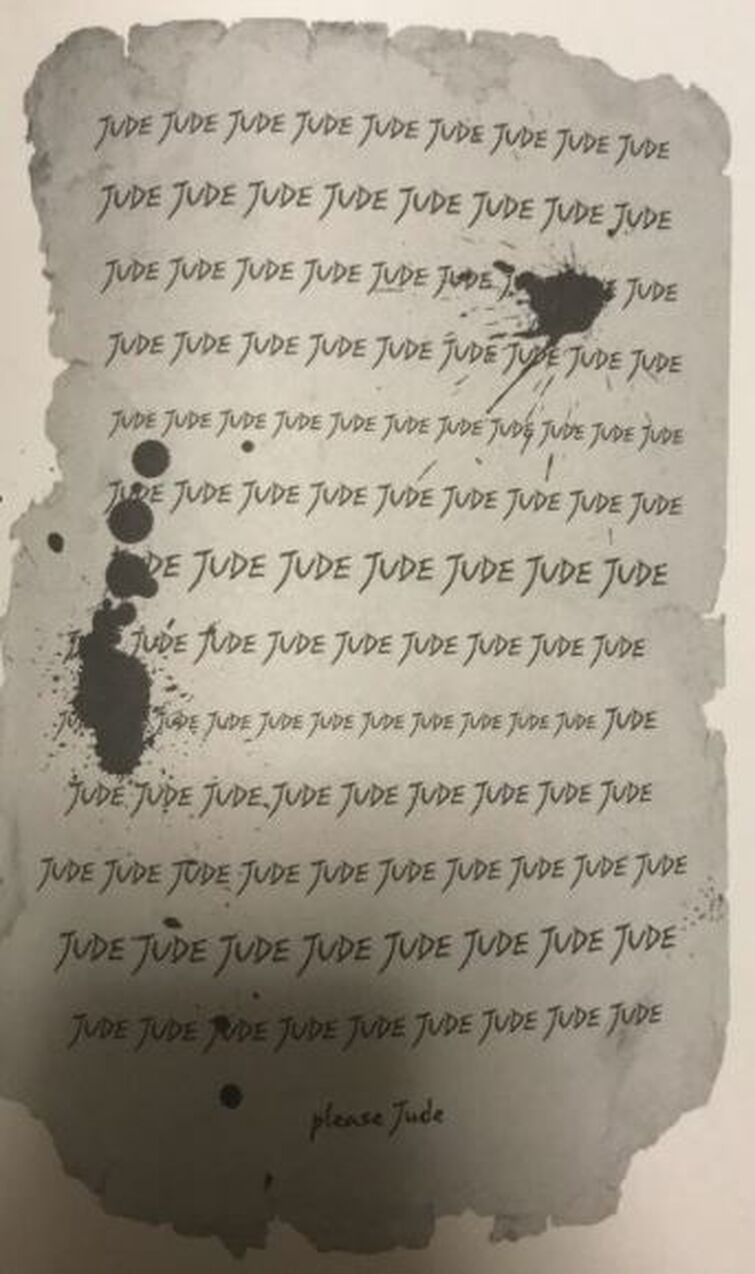 JUDE JUDE JUDE JUDE JUDE JUDE JUDE JUDE JUDE
JUDE JUDE JUDE JUDE JUDE JUDE JUDE JUDE
JUDE JUDE JUDE JUDE JUDE JUDE JUDE
JUDE JUDE JUDE JUDE JUDE JUDE JUDE JUDE JUDE
JUDE JUDE JUDE JUDE JUDE JUDE JUDE JUDE JUDE JUDE JUDE
JUDE JUDE JUDE JUDE JUDE JUDE JUDE JUDE JUDE
JUDE JUDE JUDE JUDE JUDE JUDE
JUDE JUDE JUDE JUDE JUDE JUDE JUDE JUDE
JUDE JUDE JUDE JUDE JUDE JUDE JUDE JUDE JUDE JUDE
JUDE JUDE JUDE JUDE JUDE JUDE JUDE JUDE JUDE
JUDE JUDE JUDE JUDE JUDE JUDE JUDE JUDE JUDE JUDE
JUDE JUDE JUDE JUDE JUDE JUDE JUDE JUDE
JUDE JUDE JUDE JUDE JUDE JUDE JUDE JUDE JUDE
please Jude